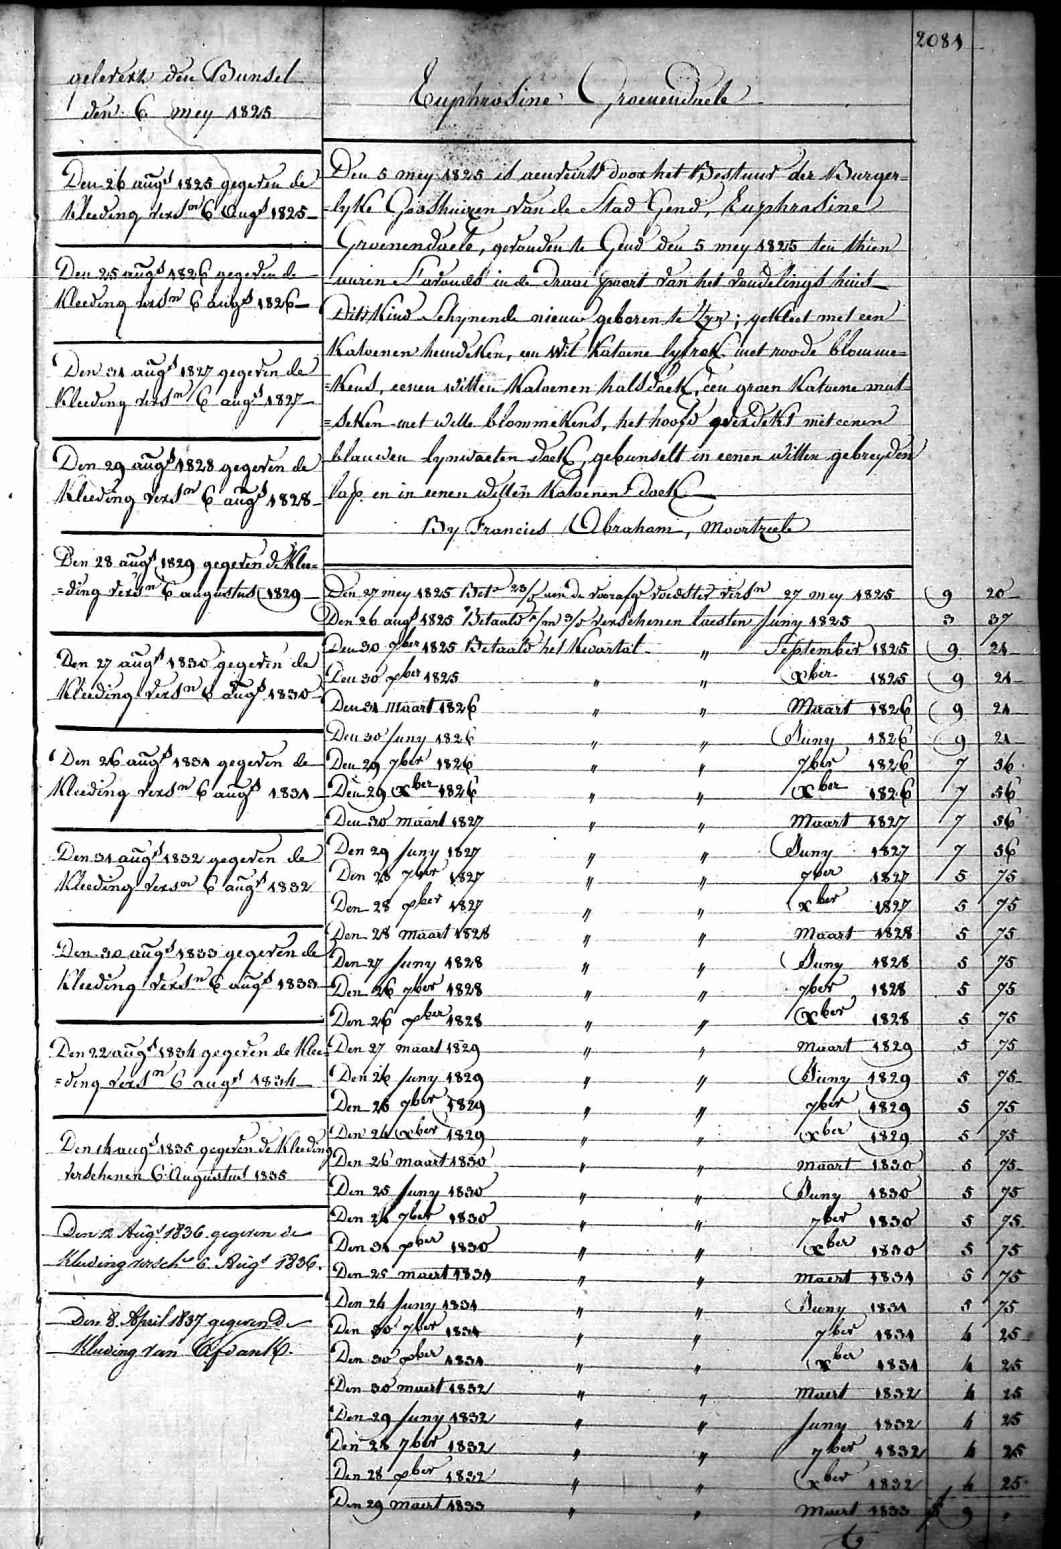 2084
gelevert den Bunsel
den 6 mey 1825
Den 26 augs 1825 gegeven de
kleeding versn 6 Augs 1825
Den 25 augs 1826 gegeven de
kleeding versn 6 augs 1826
Den 31 augs 1827 gegeven de
kleeding versn 6 augs 1827
Den 29 augs 1828 gegeven de
kleeding versn 6 augs 1828
Den 28 augs 1829 gegeven de klee=
=ding versn 6 augustus 1829
Den 27 augs 1830 gegeven de
kleeding versn 6 augs 1830
Den 26 augs 1831 gegeven de
kleeding versn 6 augs 1831
Den 31 augs 1832 gegeven de
kleeding versn 6 augs 1832
Den 30 augs 1833 gegeven de
kleeding versn 6 augs 1833
Den 22 augs 1834 gegeven de klee=
=ding versn 6 augs 1834
Den 14 augs 1835 gegeven de kleeding
verschenen 6 Augustus 1835
Den 12 Augs 1836 gegeven de
kleeding versche 6 Augs 1836.
Den 8 April 1837 gegeven de
kleeding van
Euphrosine Groenendaele
Den 5 mey 1825 is door het Bestuur der Burger=
=lyke Godshuizen van de Stad Gend, Euphrosine
Groenendaele, gevonden te Gend den 5 mey 1825 ten thien
uuren s'avonds in de draai poort van het vondelings huis
Dit kind schynende nieuw geboren te zyn; gekleet met een
katoenen hemdeken, een wit katoene lyfrok met roode blomme=
=kens, eenen witten katoenen halsdoek, een groen katoene mut=
=seken met witte blommekens, het hoofd overdekt met eenen
blauwen lynwaeten doek, gebunselt in eenen witten gebreyden
lap en in eenen witten katoenen doek
By Francies Abraham, Moortzeele
Den 27 mey 1825 Bet 23/5 aen de voorafg voedster versn 27 mey 1825 9 20
Den 26 augs 1825 Betaelt verschenen laesten Juny 1825 3 37
Den 30 7ber 1825 Betaald het kwartal " September 1825 9 21
Den 30 xber 1825 " " Xber 1825 9 21
Den 31 maart 1826 " " Maart 1826 9 21
Den 30 Juny 1826 " " Juny 1826 9 21
Den 29 7ber 1826 " " 7ber 1826 7 56
Den 29 Xber 1826 " " Xber 1826 7 56
Den 30 maart 1827 " " Maart 1827 7 56
Den 29 Juny 1827 " " Juny 1827 7 56
Den 28 7ber 1827 " " 7ber 1827 5 75
Den 28 xber 1827 " " Xber 1827 5 75
Den 28 maart 1828 " " Maart 1828 5 75
Den 27 Juny 1828 " " Juny 1828 5 75
Den 26 7ber 1828 " " 7ber 1828 5 75
Den 26 xber 1828 " " Xber 1828 5 75
Den 27 maart 1829 " " Maart 1829 5 75
Den 26 Juny 1829 " " Juny 1829 5 75
Den 26 7ber 1829 " " 7ber 1829 5 75
Den 24 Xber 1829 " " Xber 1829 5 75
Den 26 maart 1830 " " Maart 1830 5 75
Den 25 Juny 1830 " " Juny 1830 5 75
Den 24 7ber 1830 " " 7ber 1830 5 75
Den 31 xber 1830 " " Xber 1830 5 75
Den 25 maert 1831 " " Maert 1831 5 75
Den 24 Juny 1831 " " Juny 1831 5 75
Den 30 7ber 1831 " " 7ber 1831 4 25
Den 30 xber 1831 " " Xber 1831 4 25
Den 30 maert 1832 " " Maert 1832 4 25
Den 29 Juny 1832 " " Juny 1832 4 25
Den 28 7ber 1832 " " 7ber 1832 4 25
Den 28 xber 1832 " " Xber 1832 4 25
Den 29 maert 1833 " " Maert 1833 9 "